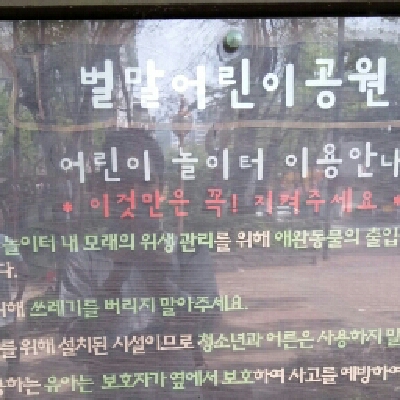 벌말어린이공원
어린이 놀이터 이용안내
* 이것만은 꼭! 지켜주세요 *
놀이터 내 모래의 위생관리를 위해 애완동물의 출입
다.
위해 쓰레기를 버리지 말아주세요.
를 위해 설치된 시설이므로 청소년과 어른은 사용하지 말
하는 유아는 보호자가 옆에서 보호하여 사고를 예방하여